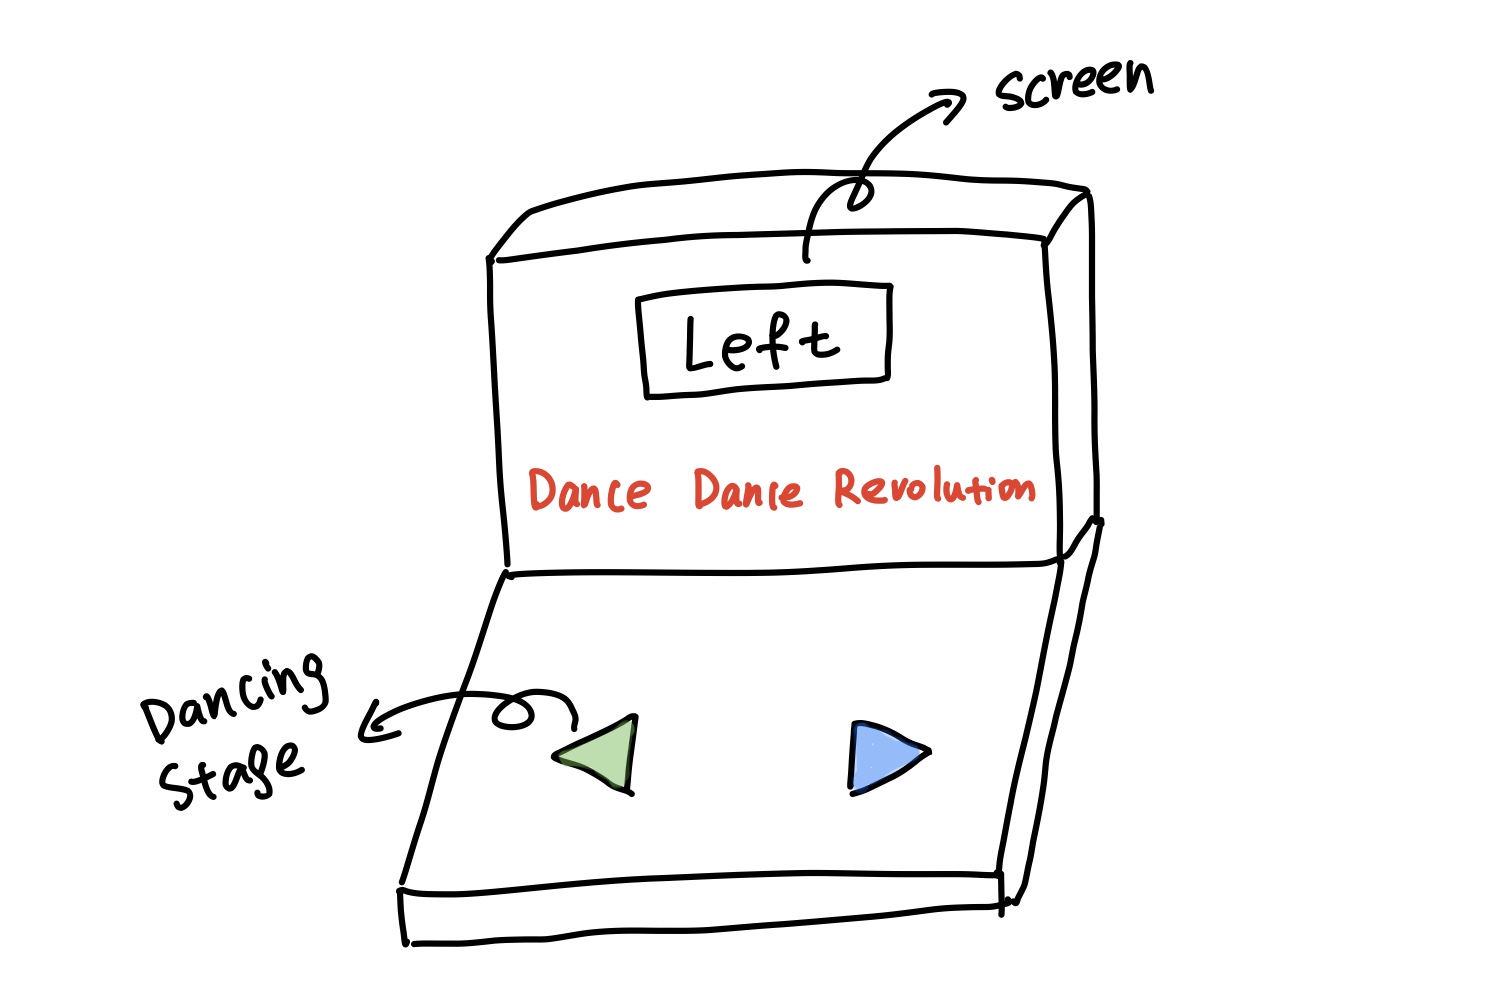 screen
Left
Dance Dance Revolution
Dancing
stage